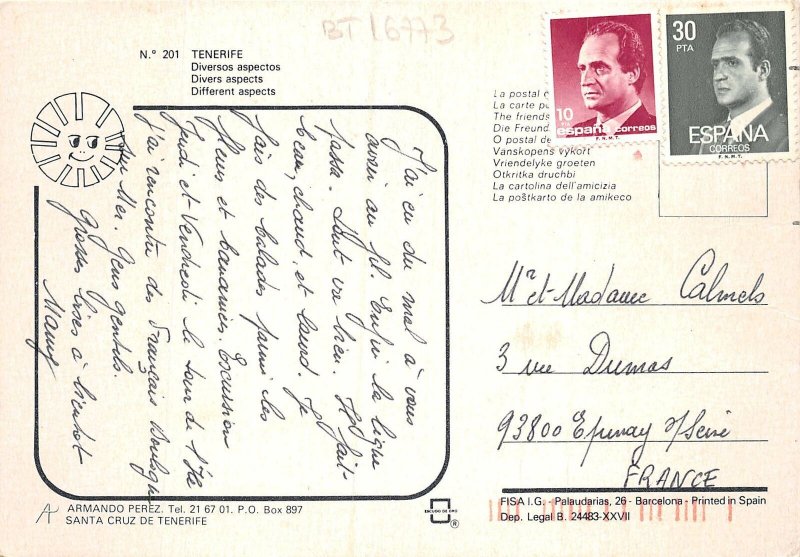 BT 16773
N.º 201 TENERIFE
Diversos aspectos
Divers aspects
Different aspects
J'ai eu du mal à vous
avoir au fil. Enfin la ligne
passa. Tout va bien. Il fait
beau, chaud, et lourd. Je
fais des balades parmi les
fleurs et bananiers. Excursion
Jeudi et Vendredi le tour de l'île
J'ai rencontré des Français Boulogne
sur Mer. Gens gentils.
Grosses bises à bientôt
Mamy
ARMANDO PEREZ. Tel. 21 67 01. P.O. Box 897
SANTA CRUZ DE TENERIFE
ESCUDO DE ORO
®
La postal
La carte
The friends
Die Freund
O postal de
Vanskopens vykort
Vriendelyke groeten
Otkritka druchbi
La cartolina dell'amicizia
La poŝtkarto de la amikeco
10
PTA
españa correos
F.N.M.T.
30
PTA
ESPAÑA
CORREOS
F.N.M.T.
Mr et Madame Calmels
3 rue Dumas
93800 Epinay s/Seine
FRANCE
FISA I.G. - Palaudarias, 26 - Barcelona - Printed in Spain
Dep. Legal B. 24483-XXVII